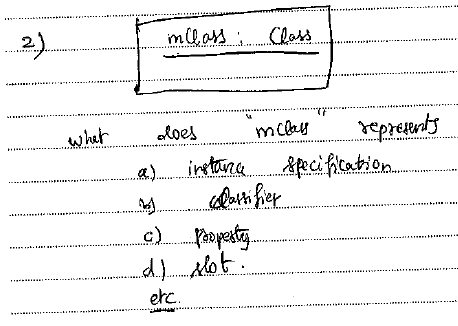 2)
mClass : Class
what does "mclass" represents
a) instance specification
b) classifier
c) property
d) slot.
etc